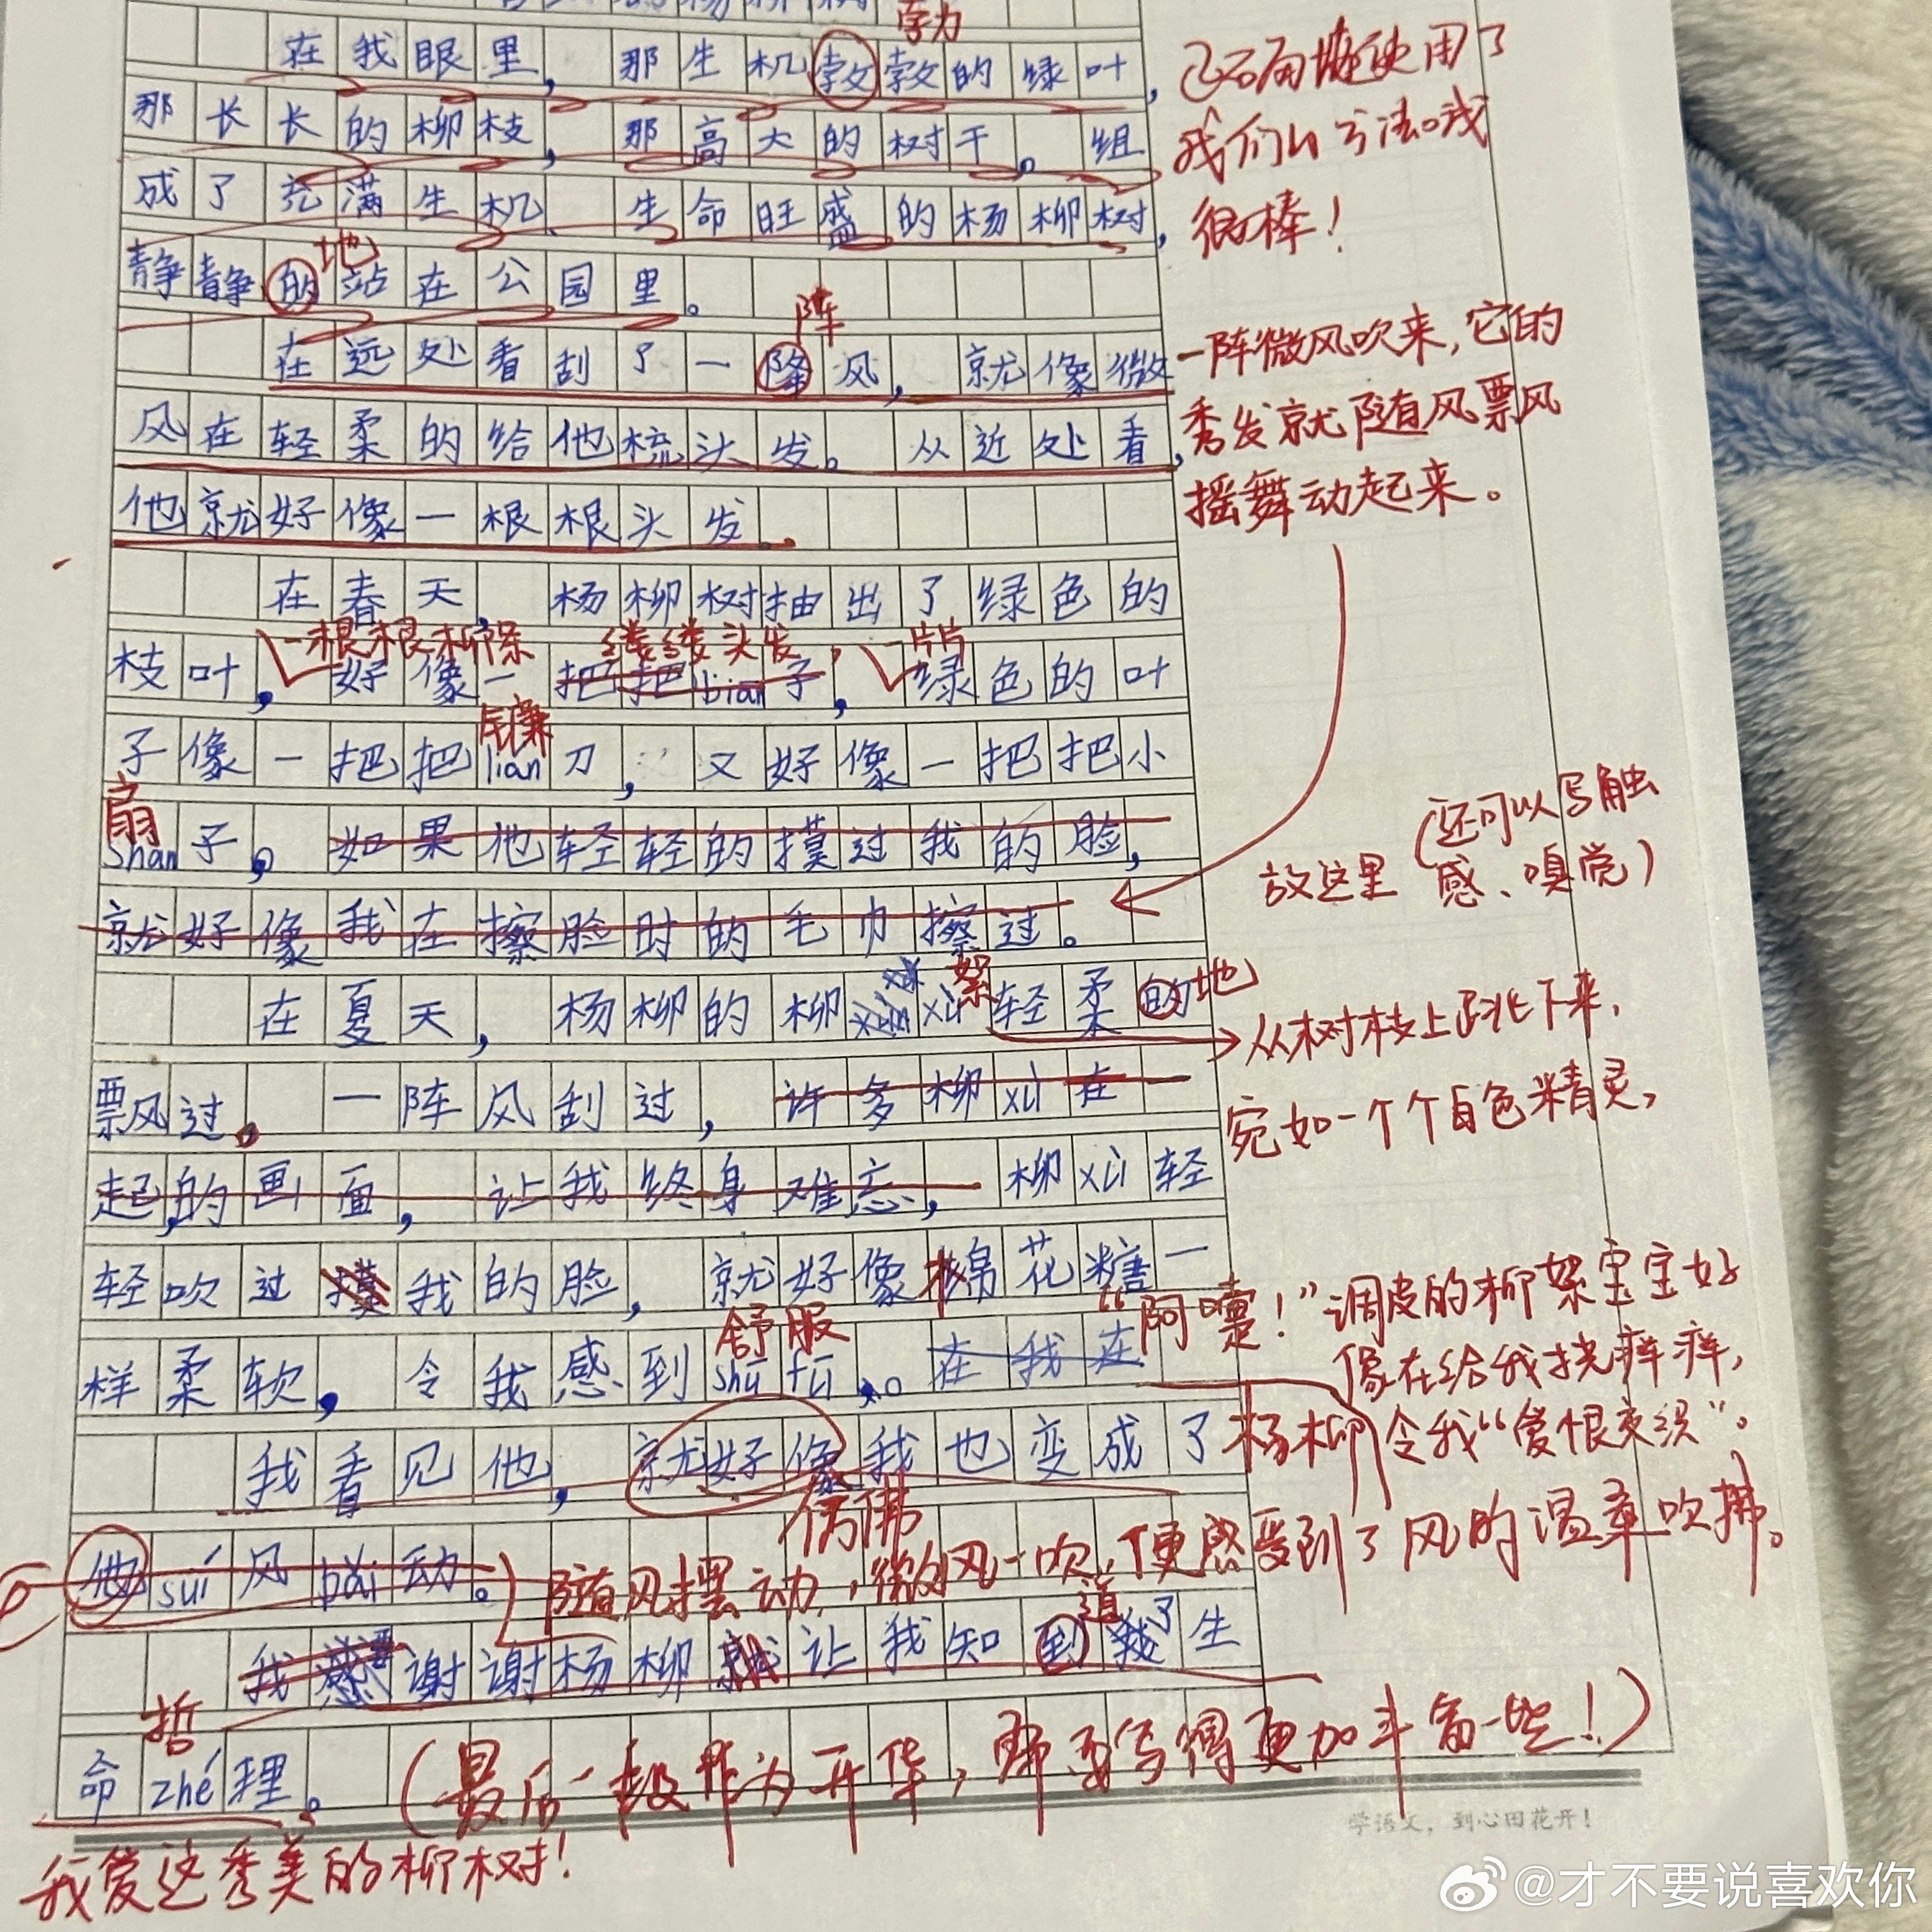 勃
在我眼里，那生机敎敎的绿叶，
已石角使用了
那长长的柳枝，那高大的树干。组
我们的方法。哦
成了充满生机、生命旺盛的杨柳树，
很棒！
地
静静的站在公园里。
阵
在远处看刮了一降风，就像微
一阵微风吹来，它的
风在轻柔的给他梳头发。从近处看，
秀发就随风飘
他就好像一根根头发。
摇舞动起来。
在春天，杨柳树抽出了绿色的
一根根柳条 缕缕头发， 一片片
枝叶，好像一把把biān子，绿色的叶
镰
子像一把把lián刀，又好像一把把小
扇
shàn子。如果他轻轻的摸过我的脸，
（还可以写触
放这里 感、嗅觉）
就好像我在擦脸时的毛巾擦过。
絮
在夏天，杨柳的柳xù轻柔的
地
从树枝上跳下来，
飘过。一阵风刮过，许多柳xù在一
宛如一个个白色精灵，
起的画面，让我终身难忘，柳xù轻
轻吹过摸我的脸，就好像棉花糖一
“阿嚏！”调皮的柳絮宝宝好
舒服
样柔软，令我感到shū fú。在我在
像在给我挠痒痒，
令我“爱恨交织”。
我看见他，就好像我也变成了
杨柳
仿佛
他suí风bǎi动。
随风摆动，微风一吹，便感受到了风的温柔吹拂。
道 了
我感谢谢杨柳就让我知到我生
哲
命zhé理。
（最后一段作为升华，需要写得更加丰富一些！）
学语文，到心田花开！
我爱这秀美的柳树！
@才不要说喜欢你